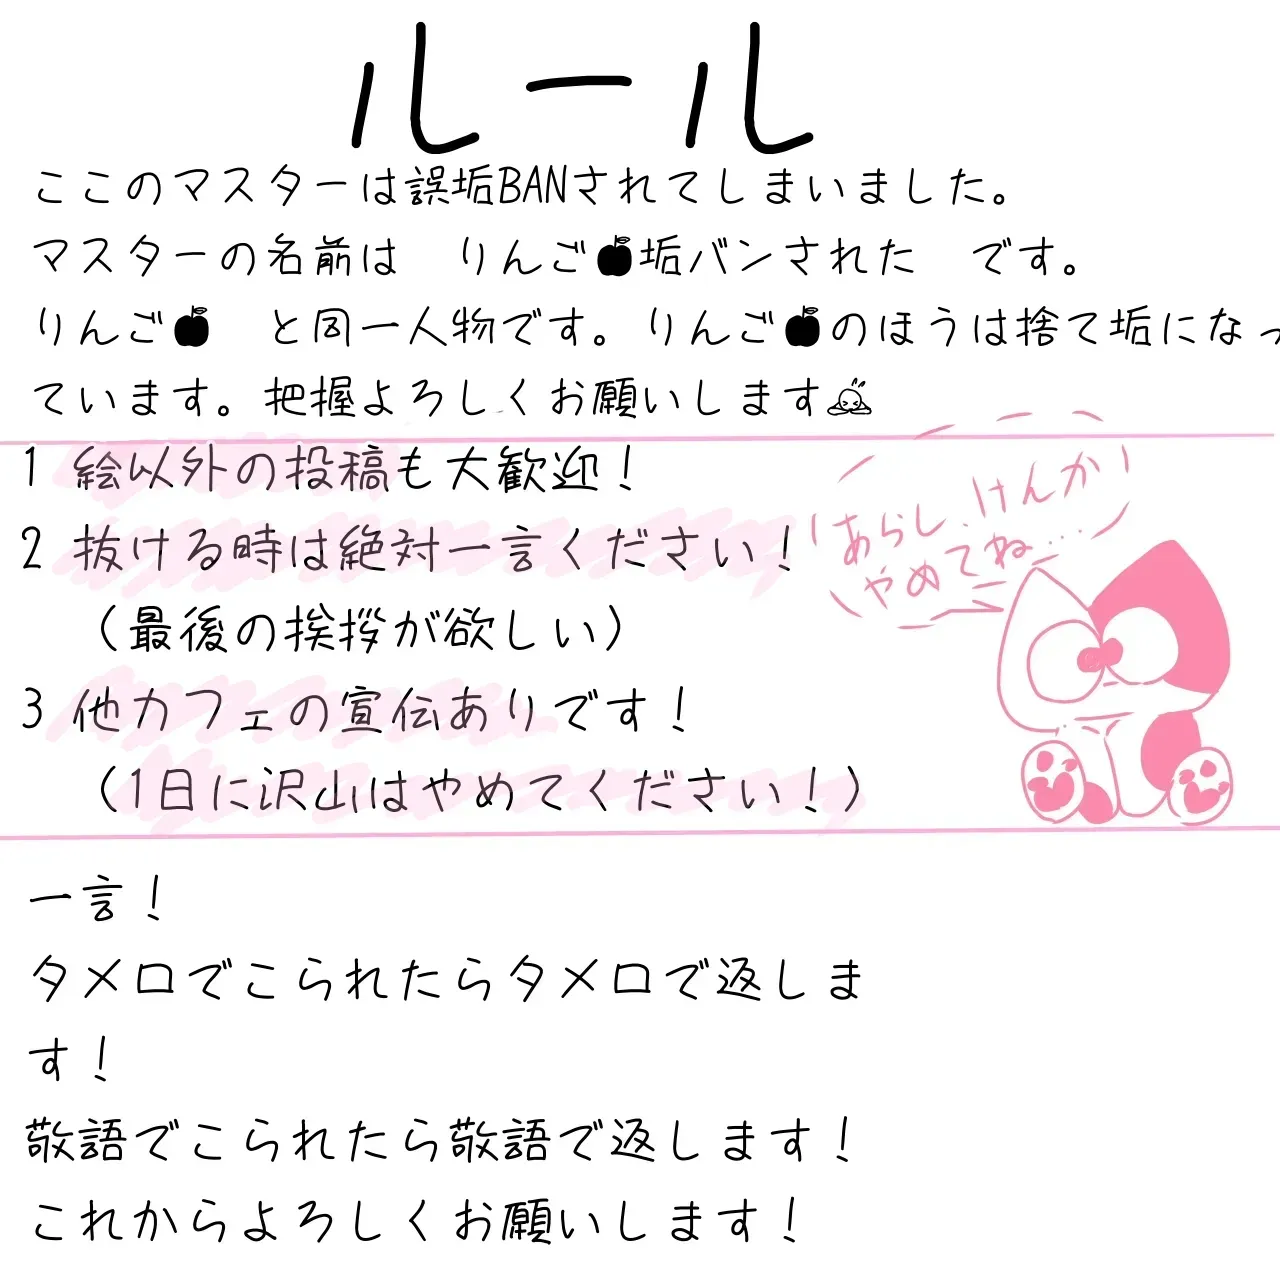 ルール
ここのマスターは誤垢BANされてしまいました。
マスターの名前は　りんご🍎垢バンされた　です。
りんご🍎　と同一人物です。りんご🍎のほうは捨て垢になっ
ています。把握よろしくお願いします
1 絵以外の投稿も大歓迎！
2 抜ける時は絶対一言ください！
（最後の挨拶が欲しい）
3 他カフェの宣伝ありです！
（1日に沢山はやめてください！）
あらし、けんか
やめてね…
一言！
タメ口でこられたらタメ口で返しま
す！
敬語でこられたら敬語で返します！
これからよろしくお願いします！